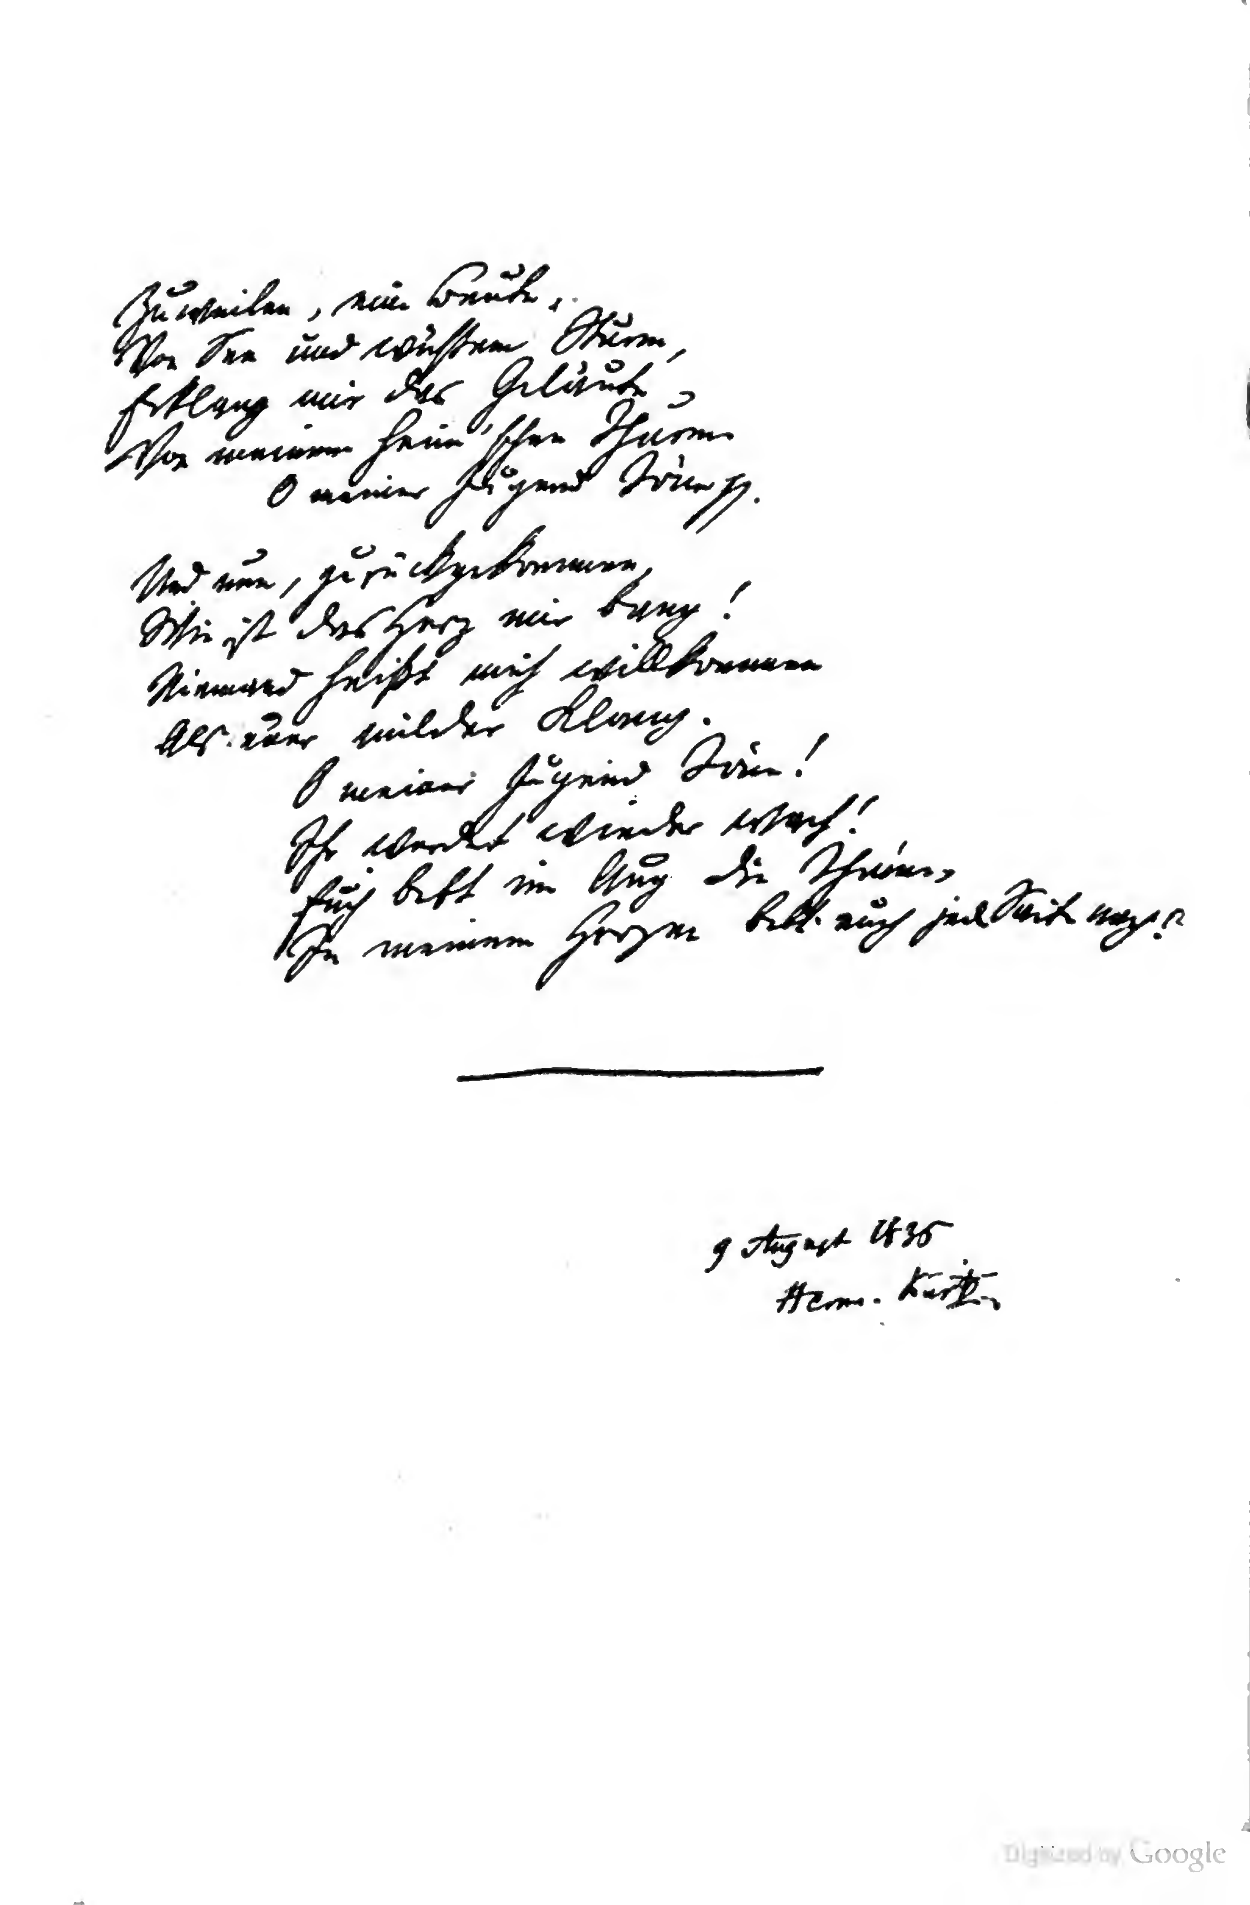 Zuweilen, eine Beute,
Von See und wüstem Sturm,
Erklang mir das Geläute
Von meinem heim'schen Thurm
O meiner Jugend Töne pp.
Und nun, zurückgekommen,
Wie ist das Herz mir bang!
Niemand heißt mich willkommen
Als euer milder Klang.
O meiner Jugend Töne!
Ihr werdet wieder wach!
Euch bebt im Aug die Thräne,
In meinem Herzen bebt euch jede Saite nach!
9 August 1836
Herm. Kurtz
Digitized by Google